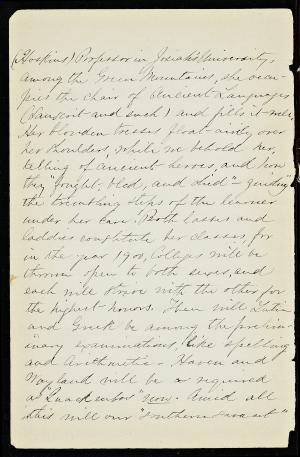 (Hoskins) Professor in Josiah's University,
among the Green Mountains, she occu-
pies the chair of Ancient Languages
(Sanscrit and such) and fills it well.
Her blonden tresses float airily over
her shoulders, while we behold her,
telling of ancient heroes and how
they fought, bled, and died" - guiding
the trembling steps of the learner
under her care. Both lasses and
laddies constitute her classes, for
in the year 1900, Colleges will be
thrown open to both sexes, and
each will strive with the other for
the highest honors. Then will Latin
and Greek be among the prelim-
inary examinations, like spelling
and Arithmetic - Haven and
Wayland will be as required
as "Quackenbos" now. Amid all
this will our "southern savant"